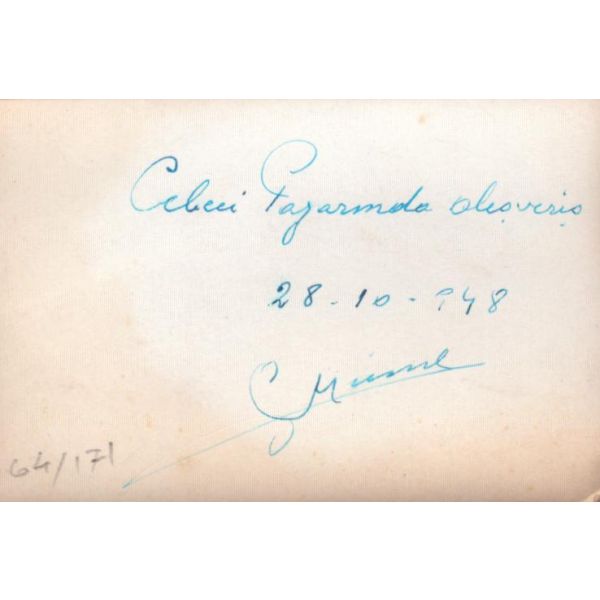 Cebeci Pazarında alışveriş
28-10-948
64/171